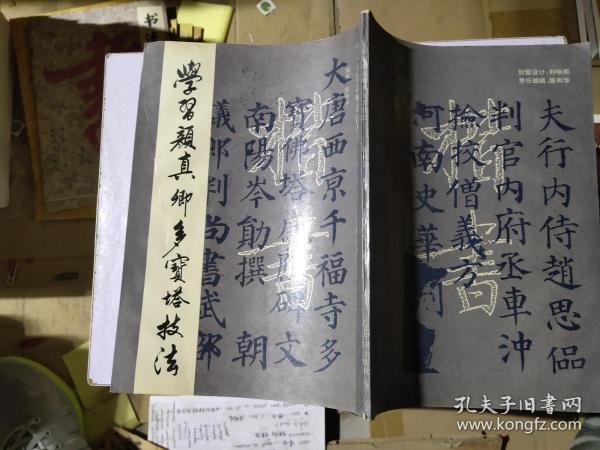 學習顏真卿多寶塔技法
大唐西京千福寺多
寶佛塔感應碑文
南陽岑勛撰 朝
議郎判尚書武部
楷書
封面设计:刘咏阁
责任编辑:陈利华
夫行内侍趙思侃
判官内府丞車沖
檢校僧義方
河南史華刻
楷書
书
孔夫子旧书网
www.kongfz.com